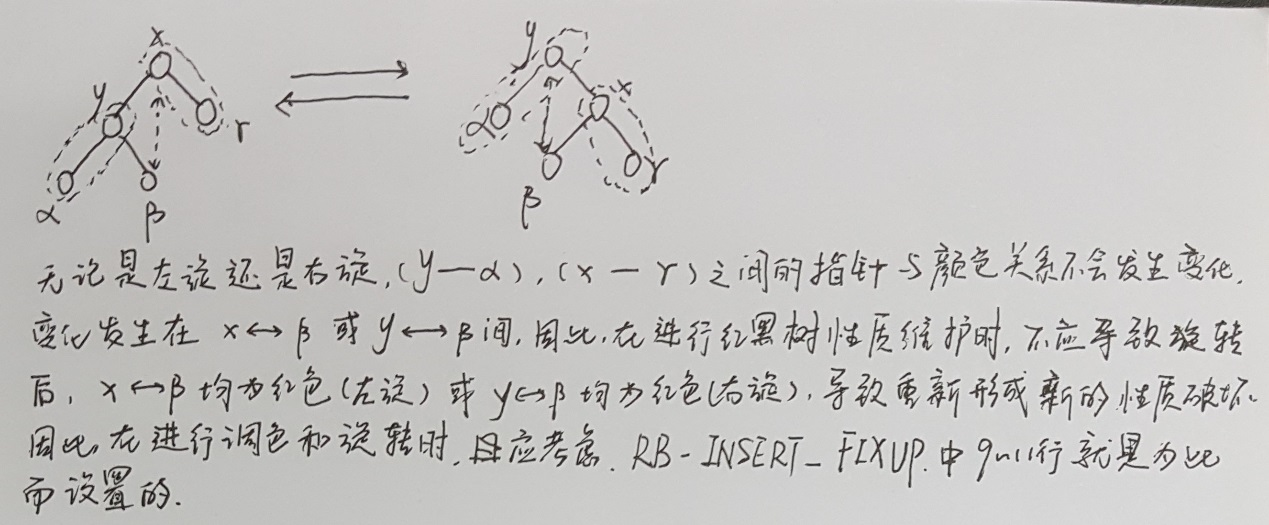 x y
y x
γ α γ
α β β
无论是左旋还是右旋,(y—α),(x—γ)之间的指针与颜色关系不会发生变化.
变化发生在 x↔β 或 y↔β间,因此,在进行红黑树性质维护时,不应导致旋转
后,x↔β均为红色(左旋)或 y↔β均为红色(右旋),导致重新形成新的性质破坏.
因此,在进行调色和旋转时,应考虑. RB-INSERT_FIXUP.中9~11行就是为此
而设置的.